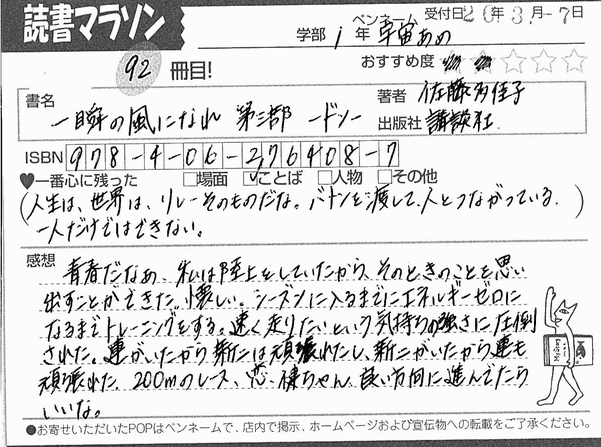 読書マラソン
学部 1年 ペンネーム 宇宙あめ 受付日20年3.月-7日
92冊目!
おすすめ度
書名 一瞬の風になれ 第三部 ードンー
著者 佐藤多佳子
出版社 講談社
ISBN 978-4-06-276408-7
♥一番心に残った □場面 ☑ことば □人物 □その他
(人生は、世界は、リレーそのものだな。バトンを渡して、人とつながっている。
一人だけではできない。)
感想
青春だなあ、私は陸上をしていたから、そのときのことを思い
出すことができた。懐しい。シーズンに入るまでにエネルギーゼロに
なるまでトレーニングをする。速く走りたいという気持ちの強さに圧倒
された。連がいたから新二は頑張れたし、新二がいたから連も
頑張れた。200mのレース、恋、棟ちゃん、良い方向に進んでたら
いいな。
●お寄せいただいたPOPはペンネームで、店内で掲示、ホームページおよび宣伝物への転載をご了承ください。